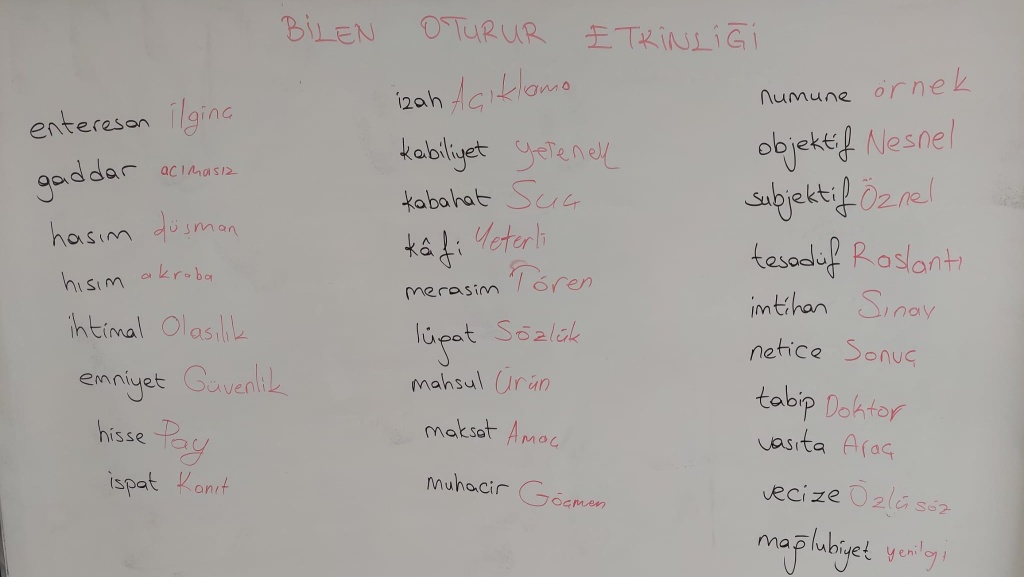 BİLEN OTURUR ETKİNLİĞİ
enteresan İlginç
gaddar acımasız
hasım düşman
hısım akraba
ihtimal Olasılık
emniyet Güvenlik
hisse Pay
ispat Kanıt
izah Açıklama
kabiliyet yetenek
kabahat Suç
kâfi Yeterli
merasim Tören
lügat Sözlük
mahsul Ürün
maksat Amaç
muhacir Göçmen
numune örnek
objektif Nesnel
subjektif Öznel
tesadüf Raslantı
imtihan Sınav
netice Sonuç
tabip Doktor
vasıta Araç
vecize Özlü söz
mağlubiyet yenilgi